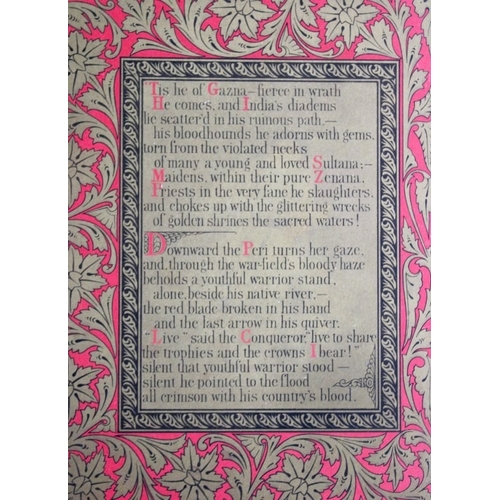 Tis he of Gazna—fierce in wrath
He comes, and India's diadems
lie scatter'd in his ruinous path,—
his bloodhounds he adorns with gems,
torn from the violated necks
of many a young and loved Sultana;—
Maidens, within their pure Zenana,
Priests in the very fane he slaughters,
and chokes up with the glittering wrecks
of golden shrines the sacred waters!
Downward the Peri turns her gaze,
and, through the war-field's bloody haze
beholds a youthful warrior stand,
alone, beside his native river,—
the red blade broken in his hand
and the last arrow in his quiver.
"Live" said the Conqueror, "live to share
the trophies and the crowns I bear!"
silent that youthful warrior stood—
silent he pointed to the flood
all crimson with his country's blood.